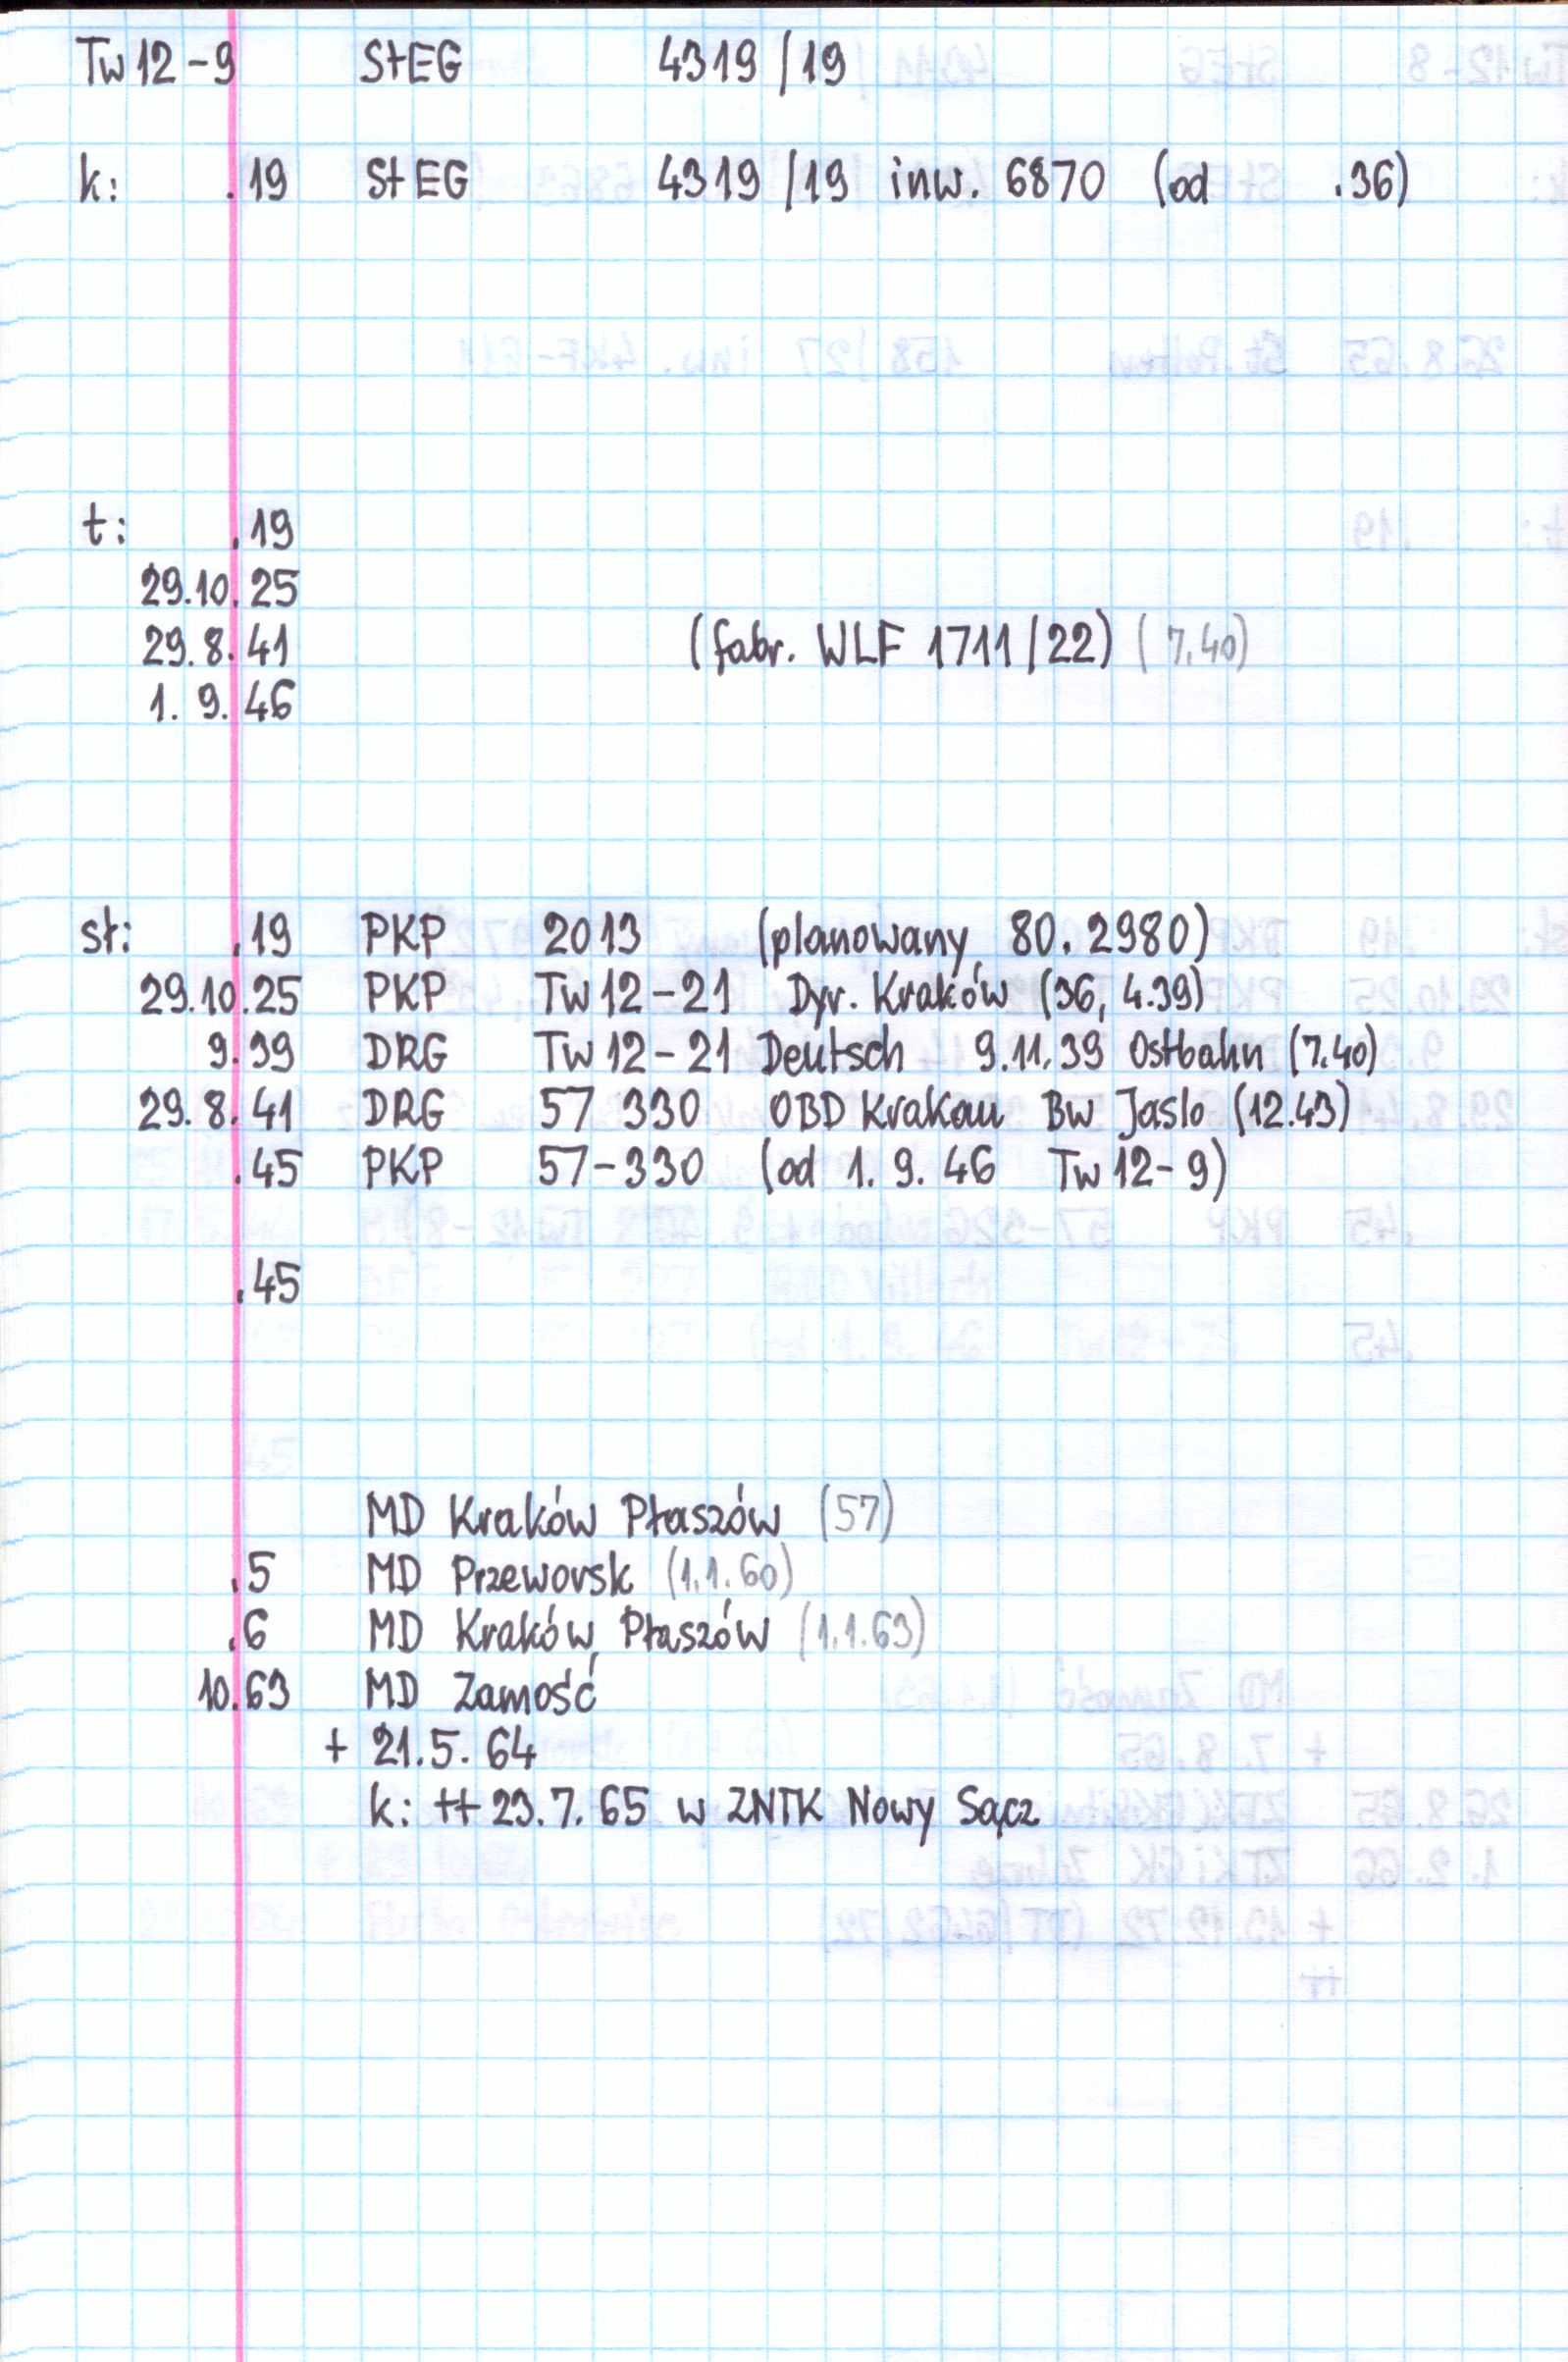 Tw12-9 StEG 4319/19
k: .19 StEG 4319/19 inw. 6870 (od .36)
t: .19
29.10.25
29.8.41 (fabr. WLF 1711/22) (7.40)
1.9.46
st: .19 PKP 2013 (planowany 80.2980)
29.10.25 PKP Tw12-21 Dyr. Kraków (36, 4.39)
9.39 DRG Tw12-21 Deutsch 9.11.39 Ostbahn (7.40)
29.8.41 DRG 57 330 OBD Krakau Bw Jaslo (12.43)
.45 PKP 57-330 (od 1.9.46 Tw12-9)
.45
MD Kraków Płaszów (57)
.5 MD Przeworsk (1.1.60)
.6 MD Kraków Płaszów (1.1.63)
10.63 MD Zamość
+ 21.5.64
k: ++ 23.7.65 w ZNTK Nowy Sącz